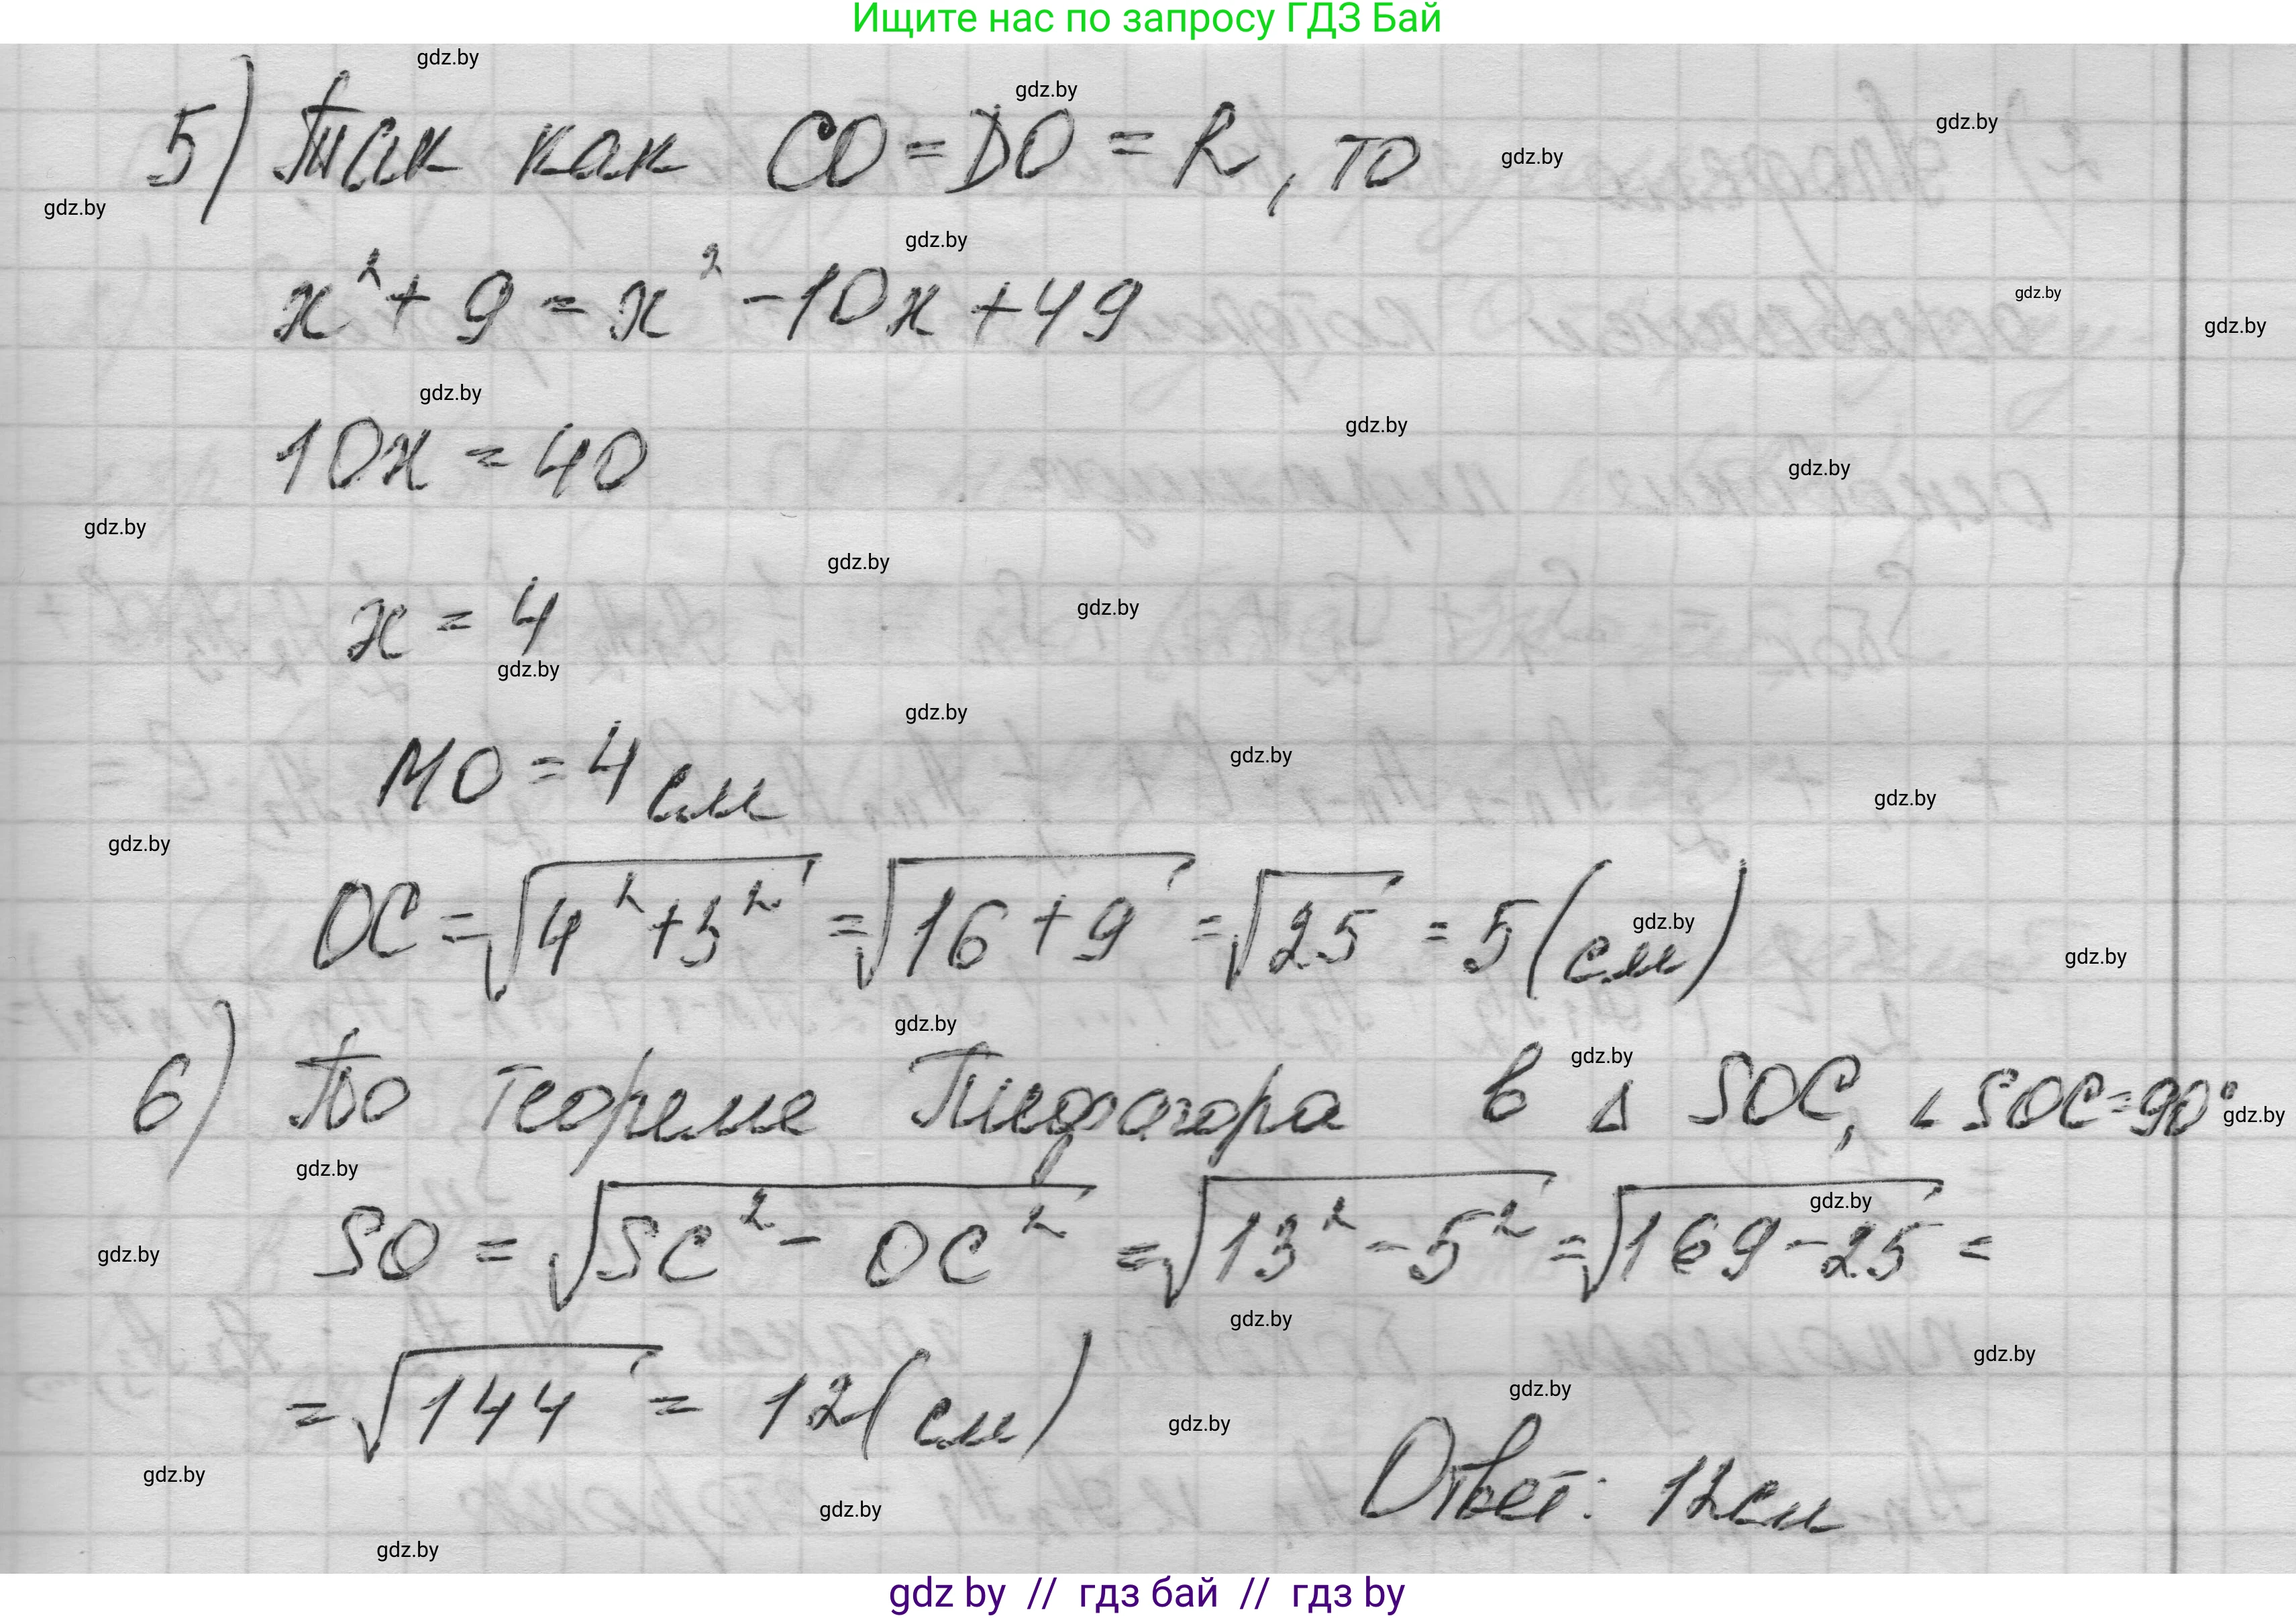 Ищите нас по запросу ГДЗ Бай
5) Так как CO = DO = R, то
x² + 9 = x² - 10x + 49
10x = 40
x = 4
MO = 4 см
OC = √(4² + 3²) = √(16 + 9) = √25 = 5 (см)
6) По теореме Пифагора в Δ SOC, ∠SOC = 90°
SO = √(SC² - OC²) = √(13² - 5²) = √(169 - 25) =
= √144 = 12 (см)
Ответ: 12 см
gdz by // гдз бай // гдз by